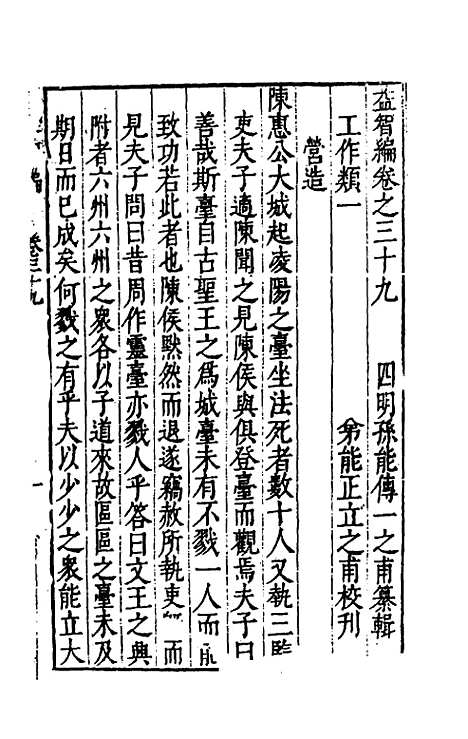 益智編卷之三十九　四明孫能傳一之甫纂輯
工作類一　弟能正立之甫校刊
營造
陳惠公大城起凌陽之臺坐法死者數十人又執三監
吏夫子適陳聞之見陳侯與俱登臺而觀焉夫子曰
善哉斯臺自古聖王之爲城臺未有不戮一人而能
致功若此者也陳侯默然而退遂竊赦所執吏　而
見夫子問曰昔周作靈臺亦戮人乎答曰文王之興
附者六州六州之衆各以子道來故區區之臺未及
期日而已成矣何戮之有乎夫以少少之衆能立大
編　卷三十九　一